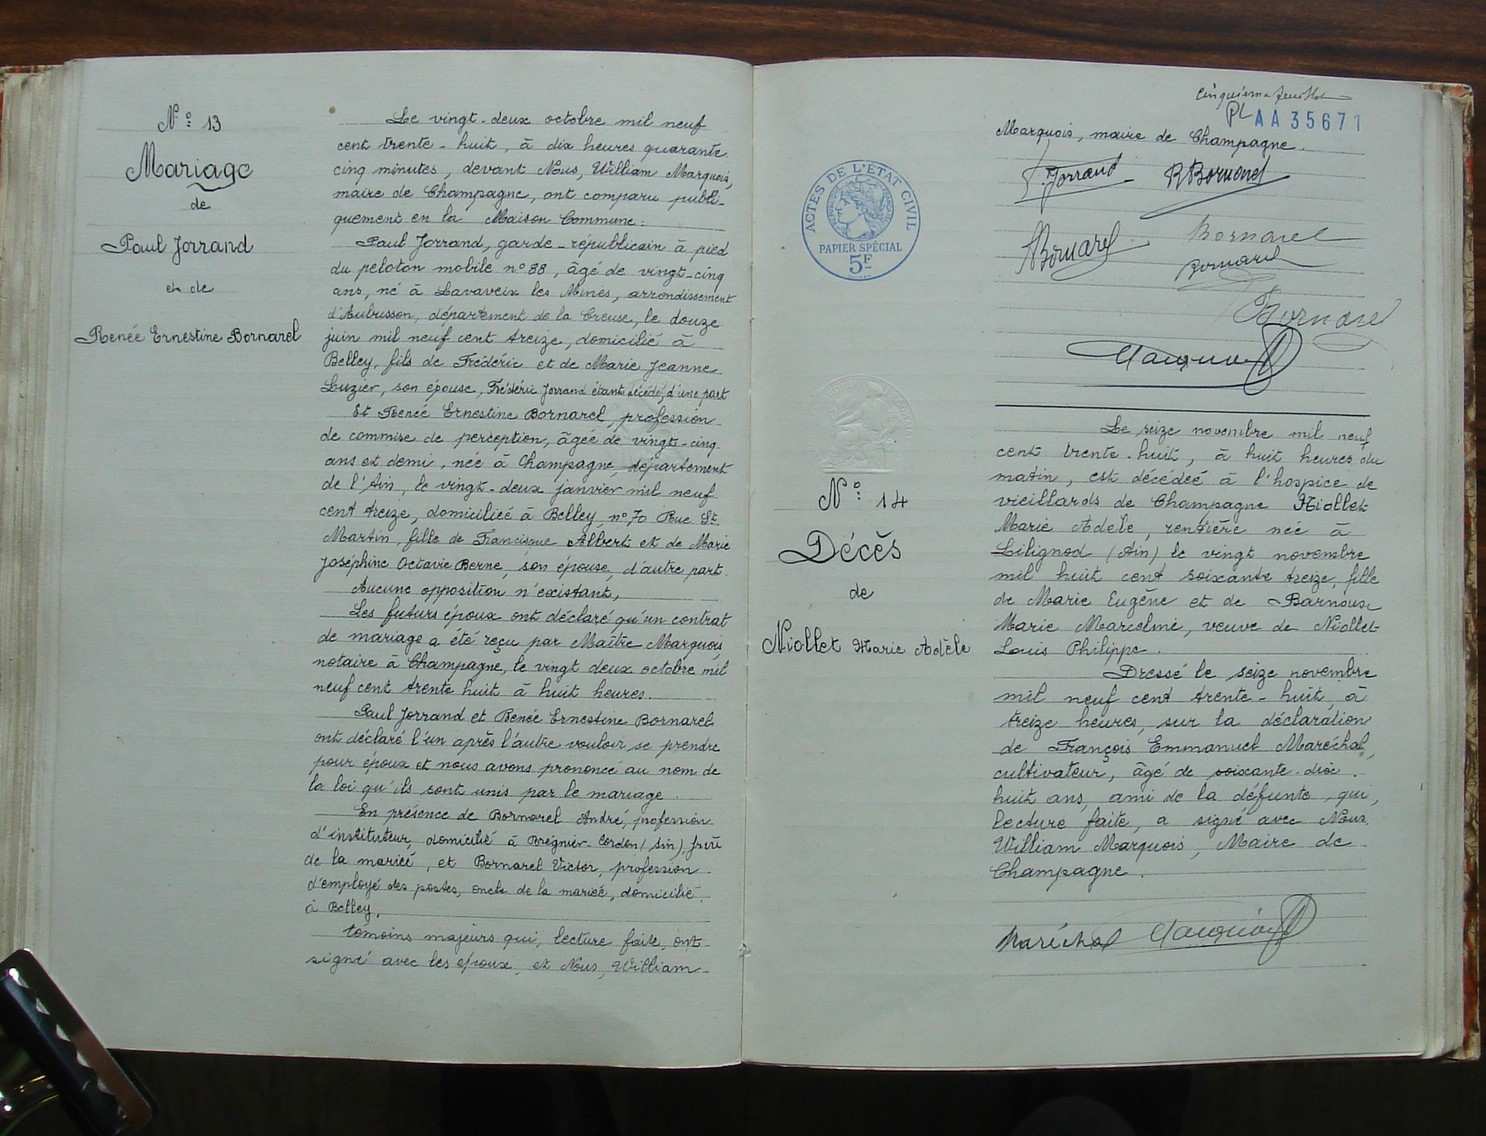 N° 13
Mariage
de
Paul Jorrand
et de
Renée Ernestine Bornarel
Le vingt-deux octobre mil neuf
cent trente-huit, à dix heures quarante
cinq minutes, devant Nous, William Marquois,
maire de Champagne, ont comparu publi-
quement en la Maison Commune:
Paul Jorrand, garde-républicain à pied
du peloton mobile n° 88, âgé de vingt-cinq
ans, né à Lavaveix les Mines, arrondissement
d'Aubusson, département de la Creuse, le douze
juin mil neuf cent treize, domicilié à
Belley, fils de Frédéric et de Marie Jeanne
Luzier, son épouse, Frédéric Jorrand étant décédé, d'une part
Et Renée Ernestine Bornarel, profession
de commise de perception, âgée de vingt-cinq
ans et demi, née à Champagne département
de l'Ain, le vingt-deux janvier mil neuf
cent treize, domiciliée à Belley, n° 70 Rue St
Martin, fille de Francisque Albert et de Marie
Joséphine Octavie Berne, son épouse, d'autre part.
Aucune opposition n'existant,
Les futurs époux ont déclaré qu'un contrat
de mariage a été reçu par Maître Marquois,
notaire à Champagne, le vingt deux octobre mil
neuf cent trente huit à huit heures.
Paul Jorrand et Renée Ernestine Bornarel
ont déclaré l'un après l'autre vouloir se prendre
pour époux et nous avons prononcé au nom de
la loi qu'ils sont unis par le mariage.
En présence de Bornarel André, profession
d'instituteur, domicilié à Brégnier-Cordon (Ain), frère
de la mariée, et Bornarel Victor, profession
d'employé des postes, oncle de la mariée, domicilié
à Belley,
témoins majeurs qui, lecture faite, ont
signé avec les époux, et Nous, William
Cinquième feuillet
PL AA35671
Marquois, maire de Champagne.
Jorrand RBornarel
Bornarel
Bornarel
Bornarel
Bornarel
Marquois
ACTES DE L'ÉTAT CIVIL
PAPIER SPÉCIAL
5F
N° 14
Décès
de
Niollet Marie Adèle
Le seize novembre mil neuf
cent trente-huit, à huit heures du
matin, est décédée à l'hospice de
vieillards de Champagne Niollet
Marie Adèle, rentière née à
Lilignod (Ain) le vingt novembre
mil huit cent soixante treize, fille
de Marie Eugène et de Barnoux
Marie Marceline, veuve de Niollet
Louis Philippe.
Dressé le seize novembre
mil neuf cent trente-huit, à
treize heures, sur la déclaration
de François Emmanuel Maréchal,
cultivateur, âgé de soixante-dix-
huit ans, ami de la défunte, qui,
lecture faite, a signé avec Nous
William Marquois, Maire de
Champagne.
Maréchal Marquois